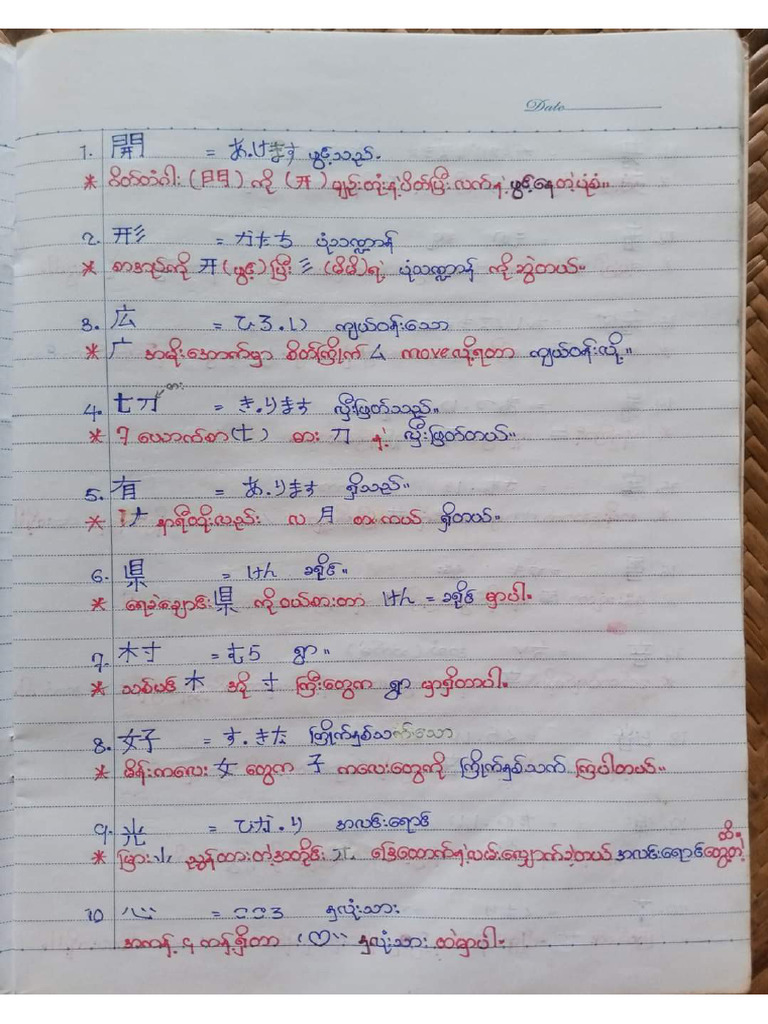 Date
1. 開 = あ.けます ဖွင့်သည်.
* ပိတ်တံဂါး (門) ကို (开) ချဉ်းတုံးနဲ့ပိတ်ပြီး လက်နဲ့ ဖွင့်နေတဲ့ပုံစံ။
2. 形 = かたち ပုံသဏ္ဍာန်
* စာအုပ်ကို 开 (ဖွင့်) ပြီး 彡 (မိမိ) ရဲ့ ပုံသဏ္ဍာန် ကို ဆွဲတယ်။
3. 広 = ひろ.い ကျယ်ဝန်းသော
* 广 အမိုးအောက်မှာ စိတ်ကြိုက် ム move လို့ရတာ ကျယ်ဝန်းလို့။
4. 切 ဓား = き.ります လှီးဖြတ်သည်။
* 7 ယောက်စာ (七) ဓား 刀 နဲ့ လှီးဖြတ်တယ်။
5. 有 = あ.ります ရှိသည်။
* ナ နာရီထိုးလည်း လ 月 စားကယ် ရှိတယ်.
6. 県 = けん ခရိုင်။
* ရေခဲချောင်း 県 ကို ဝယ်စားတာ けん = ခရိုင် မှာပါ။
7. 村 = むら ရွာ။
* သစ်ပင် 木 အို 寸 ကြီးတွေက ရွာ မှာရှိတာပါ။
8. 好 = す.きな ကြိုက်နှစ်သက်သော
* မိန်းကလေး 女 တွေက 子 ကလေးတွေကို ကြိုက်နှစ်သက် ကြပါတယ်။
9. 光 = ひか.り အလင်းရောင်
* မြား ညွှန်ထားတဲ့အတိုင်း ခြေထောက်နဲ့လမ်းလျှောက်ခဲ့တယ် အလင်းရောင်တွေ့တဲ့ ထိ။
10 心 = こころ နှလုံးသား
အခန်း ၄ ခန်းရှိတာ နှလုံးသား ထဲမှာပါ။